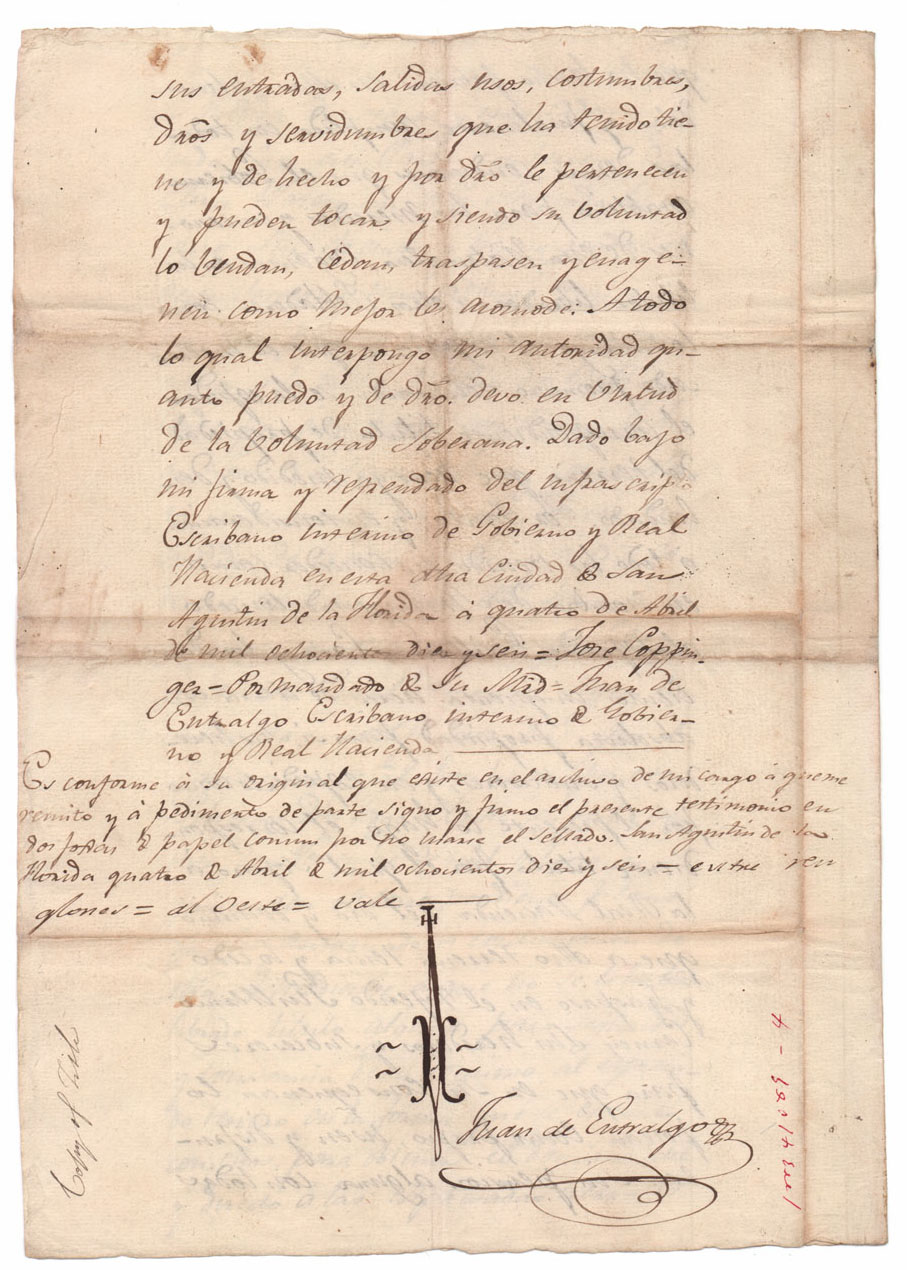 sus entradas, salidas usos, costumbres,
dr̃os y servidumbres que ha tenido tie-
ne y de hecho y por dr̃o le pertenecen
y pueden tocar y siendo su voluntad
lo vendan, cedan, traspasen y enage-
nen como mejor les acomode: A todo
lo qual interpongo mi autoridad qu-
anto puedo y de dr̃o. devo en virtud
de la voluntad soberana. Dado bajo
mi firma y refrendado del infrascripto
Escribano interino de Gobierno y Real
Hacienda en esta dha Ciudad de San
Agustin de la Florida á quatro de Abril
de mil ochocientos diez y seis = Jose Coppin-
ger = Por mandado de su Mrd = Juan de
Entralgo Escribano interino de Gobier-
no y Real Hacienda
Es conforme á su original que existe en el archivo de mi cargo á que me
remito y á pedimento de parte signo y firmo el presente testimonio en
dos fojas de papel comun por no usarse el sellado. San Agustin de la
Florida quatro de Abril de mil ochocientos diez y seis = entre ren
glones = al Oeste = vale
Juan de Entralgo
Copy of Title